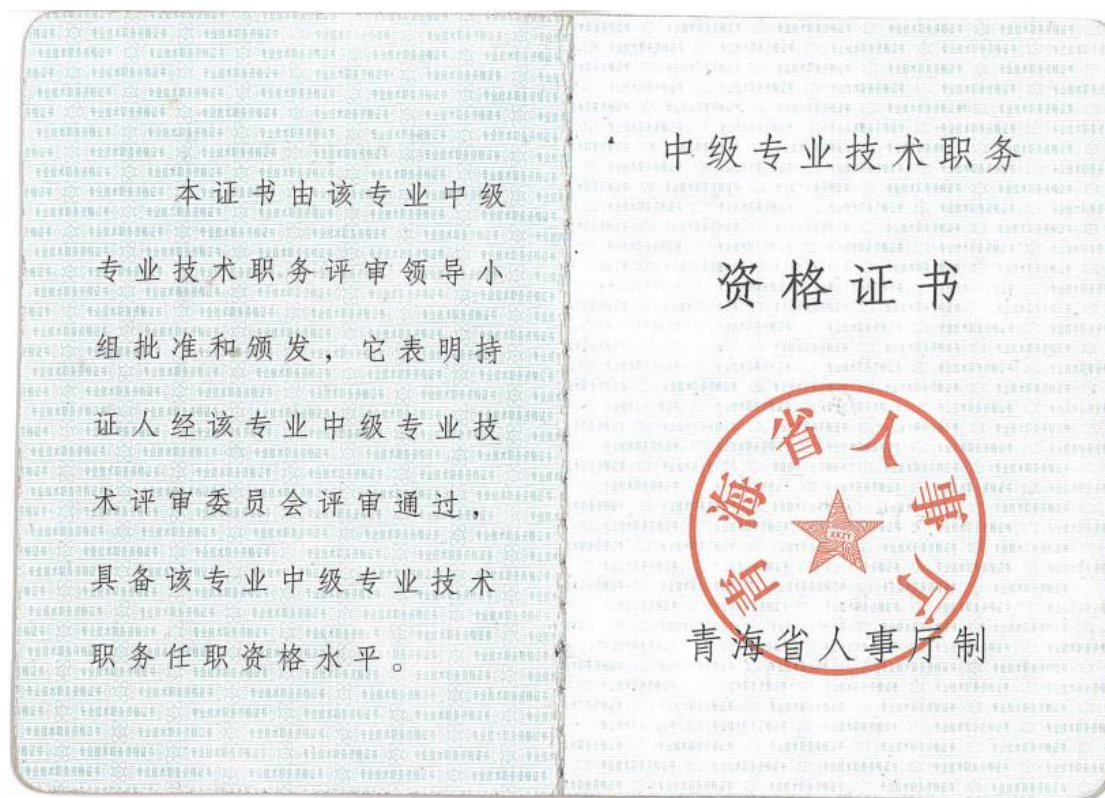 本证书由该专业中级
专业技术职务评审领导小
组批准和颁发，它表明持
证人经该专业中级专业技
术评审委员会评审通过，
具备该专业中级专业技术
职务任职资格水平。
中级专业技术职务
资格证书
青海省人事厅
青海省人事厅制